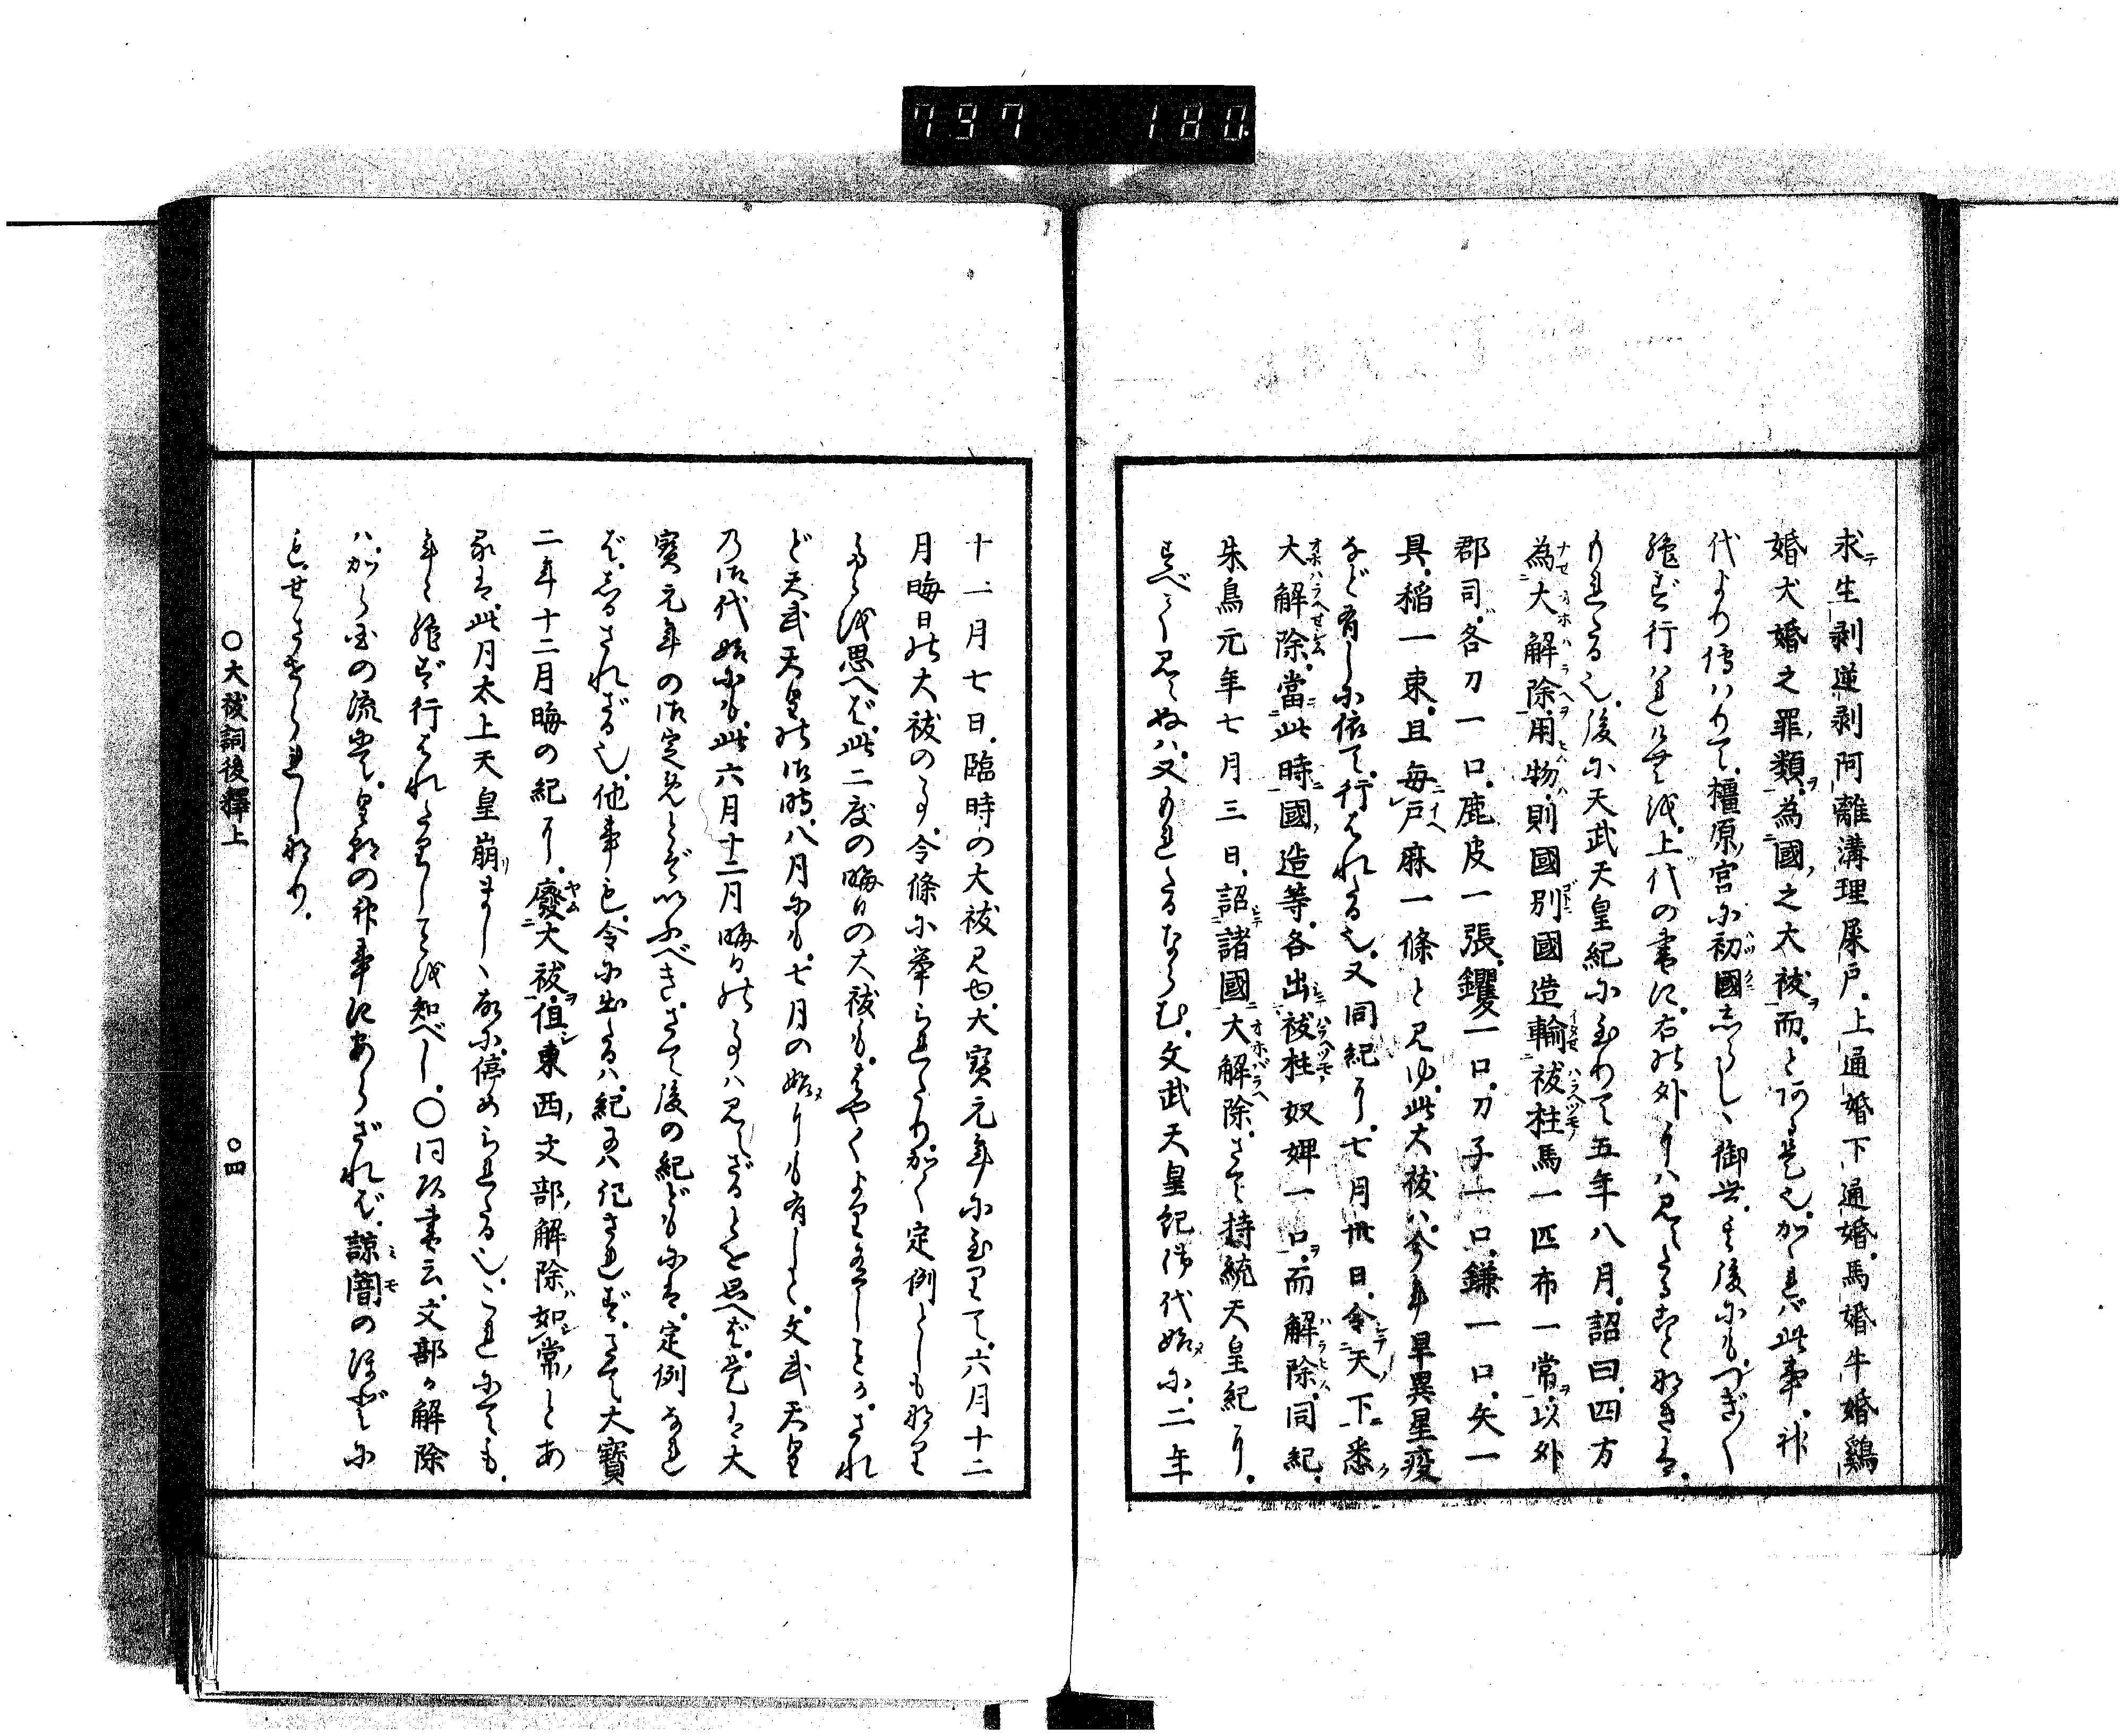 797 180
求生剥逆剥阿離溝埋屎戸。上通婚下通婚。馬婚牛婚鷄
婚犬婚之罪類。為國之大祓而。とある是也。かゝれバ此事。神
代より傳ハりて。橿原宮に初國しらしゝ御世。其後にも。つぎ〳〵
絶ず行ハれけむを。上代の書に。右の外にハ見えたることなきは。
もれたる也。後に天武天皇紀に至りて五年八月。詔曰。四方
為大解除。用物則國別國造輸祓柱馬一匹布一常。以外
郡司。各刀一口。鹿皮一張。钁一口。刀子一口。鎌一口。矢一
具。稲一束。且毎戸麻一條と見ゆ。此大祓ハ。今年旱異星疫
など有しに依て。行はれたる也。又同紀に。七月卅日。令天下悉
大解除。當此時國造等。各出祓柱奴婢一口。而解除。同紀。
朱鳥元年七月三日。詔諸國大解除。さて持統天皇紀に。
すべて見えぬハ。又もれたるならむ。文武天皇紀御代始に。二年
十一月七日。臨時の大祓見也。大寳元年に至りて。六月十二
月晦日の大祓の事。令條に挙られたり。かく定例としもなり
たるを思へば。此二度の晦日の大祓も。はやくより有しことか。され
ど天武天皇の御時。八月にも。七月の始にも有しと。文武天皇
乃御代始にも。此六月十二月晦日の事ハ見えざるとを思へば。是は大
寳元年の御定めとぞいふべき。さて後の紀どもには。定例なれ
ば。しるされざる也。他事も。令に出たるハ。紀にハ記されず。さて大寳
二年十二月晦の紀に。廢大祓。但東西文部解除如常。とあ
るは。此月太上天皇崩ましゝ故に。停められたる也。これにても。
年々絶ず行はれたりしことを知べし。〇同次書云。文部の解除
ハ。から國の流にて。皇朝の神事にあらざれば。諒闇のほどに
もせさせられしなり。
〇大祓詞後釋上 〇四